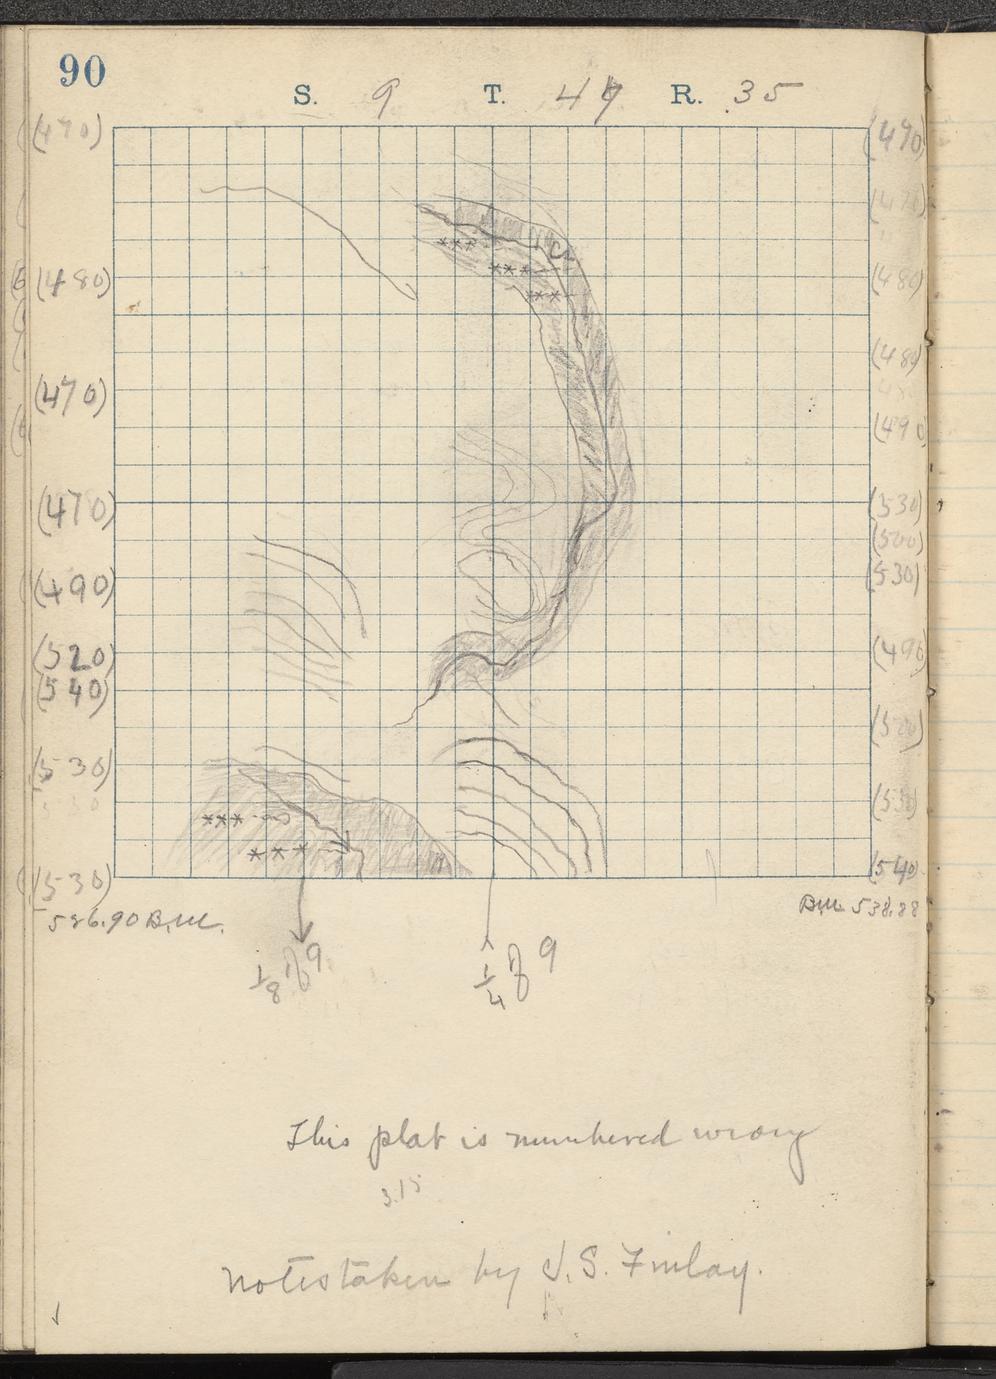 90
S. 9 T. 47 R. 35
(470) (490)
(470)
(480) (480)
(480)
(470)
(490)
(470) (530)
(500)
(490) (530)
(520) (490)
(540)
(520)
(530)
530 (530)
(530) (540)
526.90 B.M. B.M. 538.88
1/8 of 9 1/4 of 9
This plat is numbered wrong
3.15
notes taken by J. S. Finlay.